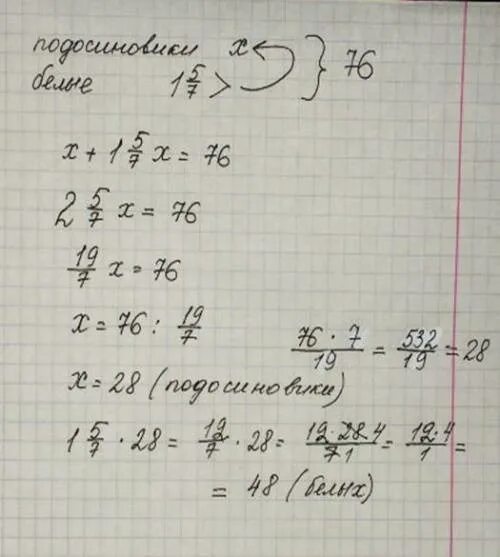 подосиновики x } 76
белые 1 5/7 >
x + 1 5/7 x = 76
2 5/7 x = 76
19/7 x = 76
x = 76 : 19/7
76 · 7/19 = 532/19 = 28
x = 28 (подосиновики)
1 5/7 · 28 = 12/7 · 28 = 12 · 28 4/7 1 = 12·4/1 =
= 48 (белых)